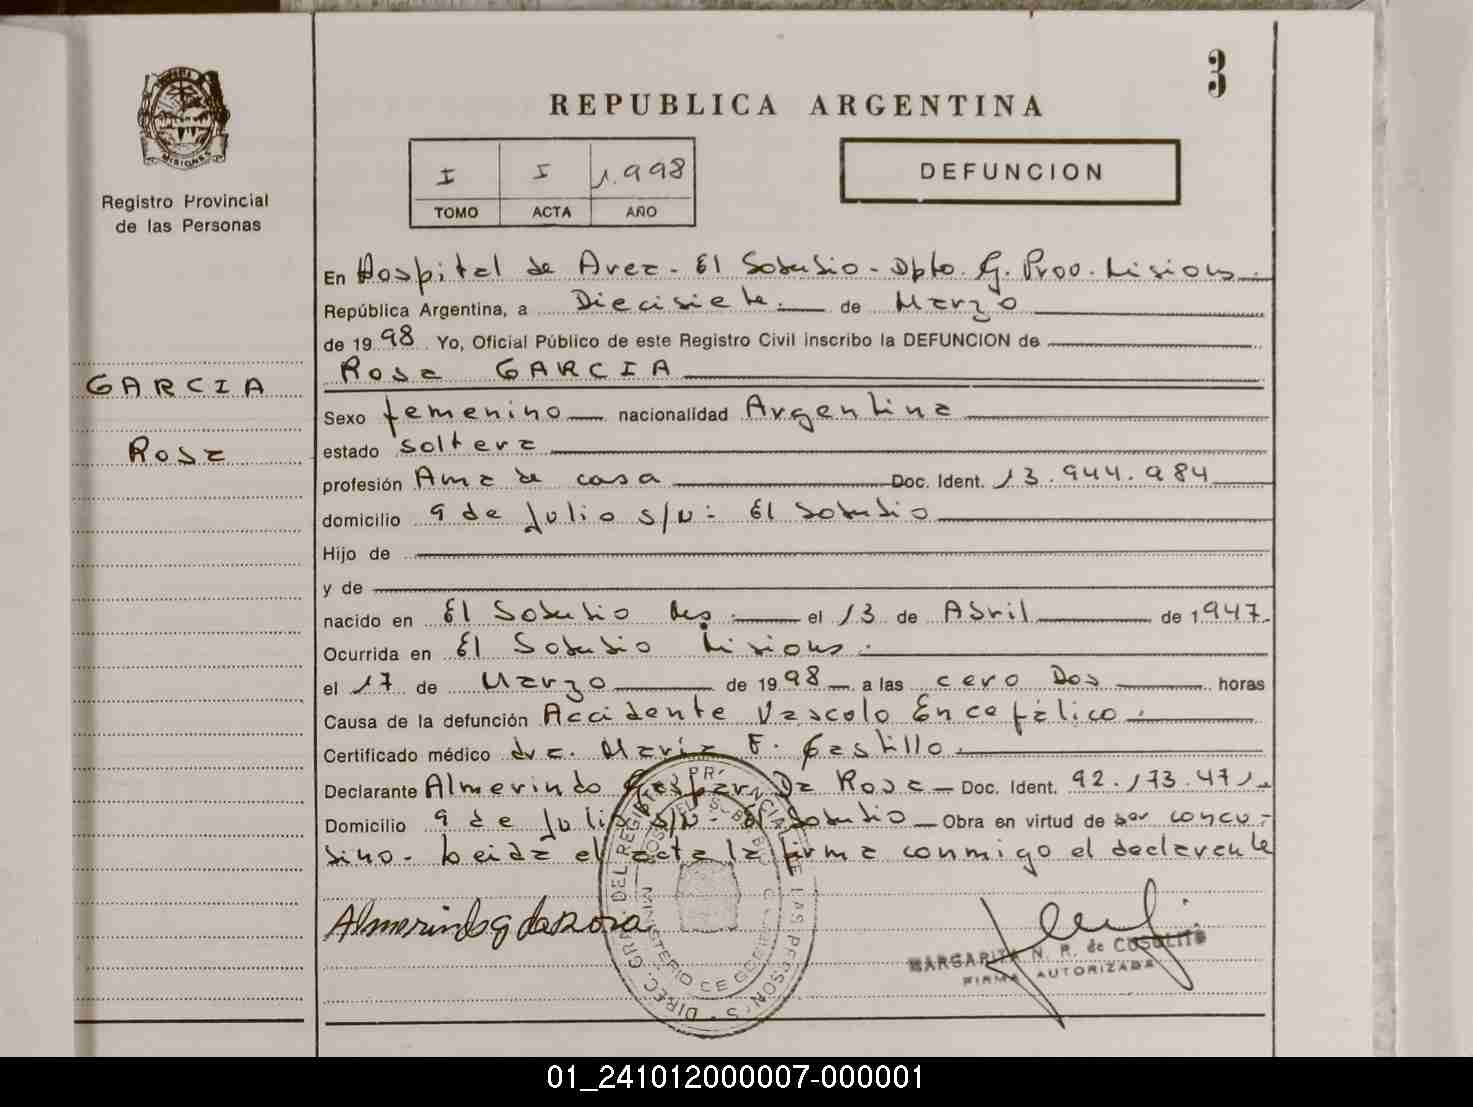 3
REPUBLICA ARGENTINA
MISIONES
Registro Provincial
de las Personas
I I 1.998
TOMO ACTA AÑO
DEFUNCION
En Hospital de Area - El Soberbio - Dpto. G. Prov. Misiones
República Argentina, a Diecisiete de Marzo
de 19 98 Yo, Oficial Público de este Registro Civil inscribo la DEFUNCION de
GARCIA
Rosa
Rosa GARCIA
Sexo femenino nacionalidad Argentina
estado soltera
profesión Ama de casa Doc. Ident. 13.944.984
domicilio 9 de Julio s/N: El Soberbio
Hijo de
y de
nacido en El Soberbio Mes. el 13 de Abril de 1947
Ocurrida en El Soberbio Misiones.
el 17 de Marzo de 1998 a las cero Dos horas
Causa de la defunción Accidente Vascolo Encefálico.
Certificado médico dra. María F. Castillo
Declarante Almerindo Gaspar Da Rosa Doc. Ident. 92.173.471
Domicilio 9 de Julio s/N - El Soberbio Obra en virtud de ser concu-
bino. Leida el acta la firma conmigo el declarante
Almerindo g da Rosa
MARGARITA N. R. de COSOLITO
FIRMA AUTORIZADA
DIREC. GRAL DEL REGISTRO PROVINCIAL DE LAS PERSONAS
MINISTERIO DE GOBIERNO
01_241012000007-000001